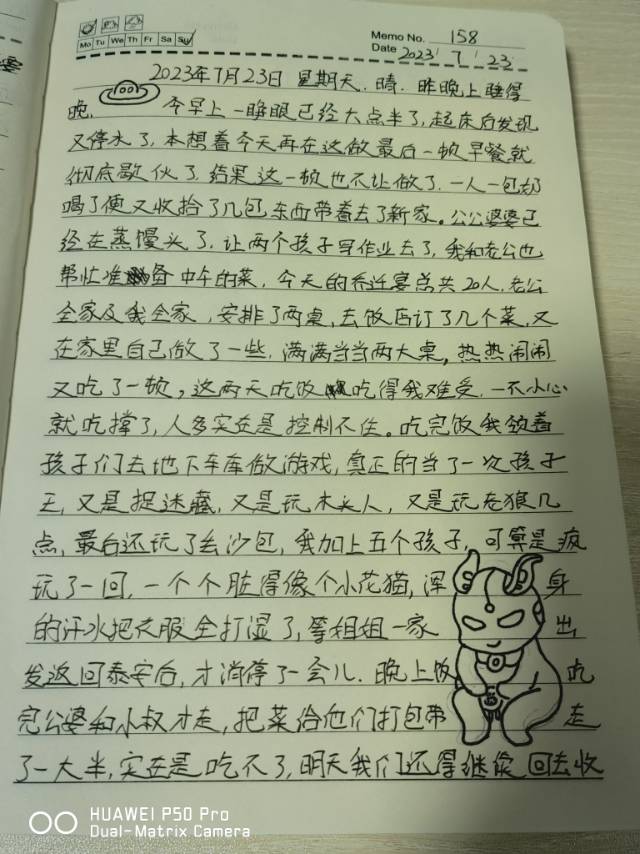 Memo No. 158
Mo Tu We Th Fr Sa Su
Date 2023 / 7 / 23
2023年7月23日 星期天. 晴. 昨晚上睡得
晚. 今早上一睁眼已经大点半了, 起床后发现
又停水了, 本想着今天再在这做最后一顿早餐就
彻底散伙了. 结果这一顿也不让做了. 一人一包奶
喝了便又收拾了几包东西带着去了新家。公公婆婆已
经在蒸馒头了, 让两个孩子写作业去了, 我和老公也
帮忙准备中午的菜, 今天的乔迁宴总共20人. 老公
全家及我全家, 安排了两桌, 去饭店订了几个菜, 又
在家里自己做了一些. 满满当当两大桌, 热热闹闹
又吃了一顿, 这两天吃饭吃得我难受. 一不小心
就吃撑了, 人多实在是控制不住。吃完饭我领着
孩子们去地下车库做游戏, 真正的当了一次孩子
王, 又是捉迷藏, 又是玩木头人, 又是玩老狼几
点, 最后还玩了丢沙包, 我加上五个孩子, 可算是疯
玩了一回. 一个个脏得像个小花猫, 浑身
的汗水把衣服全打湿了, 等姐姐一家出
发返回泰安后, 才消停了一会儿. 晚上饭吃
完公婆和小叔才走, 把菜给他们打包带走
了一大半, 实在是吃不了, 明天我们还得继续回去收
HUAWEI P50 Pro
Dual-Matrix Camera
婆